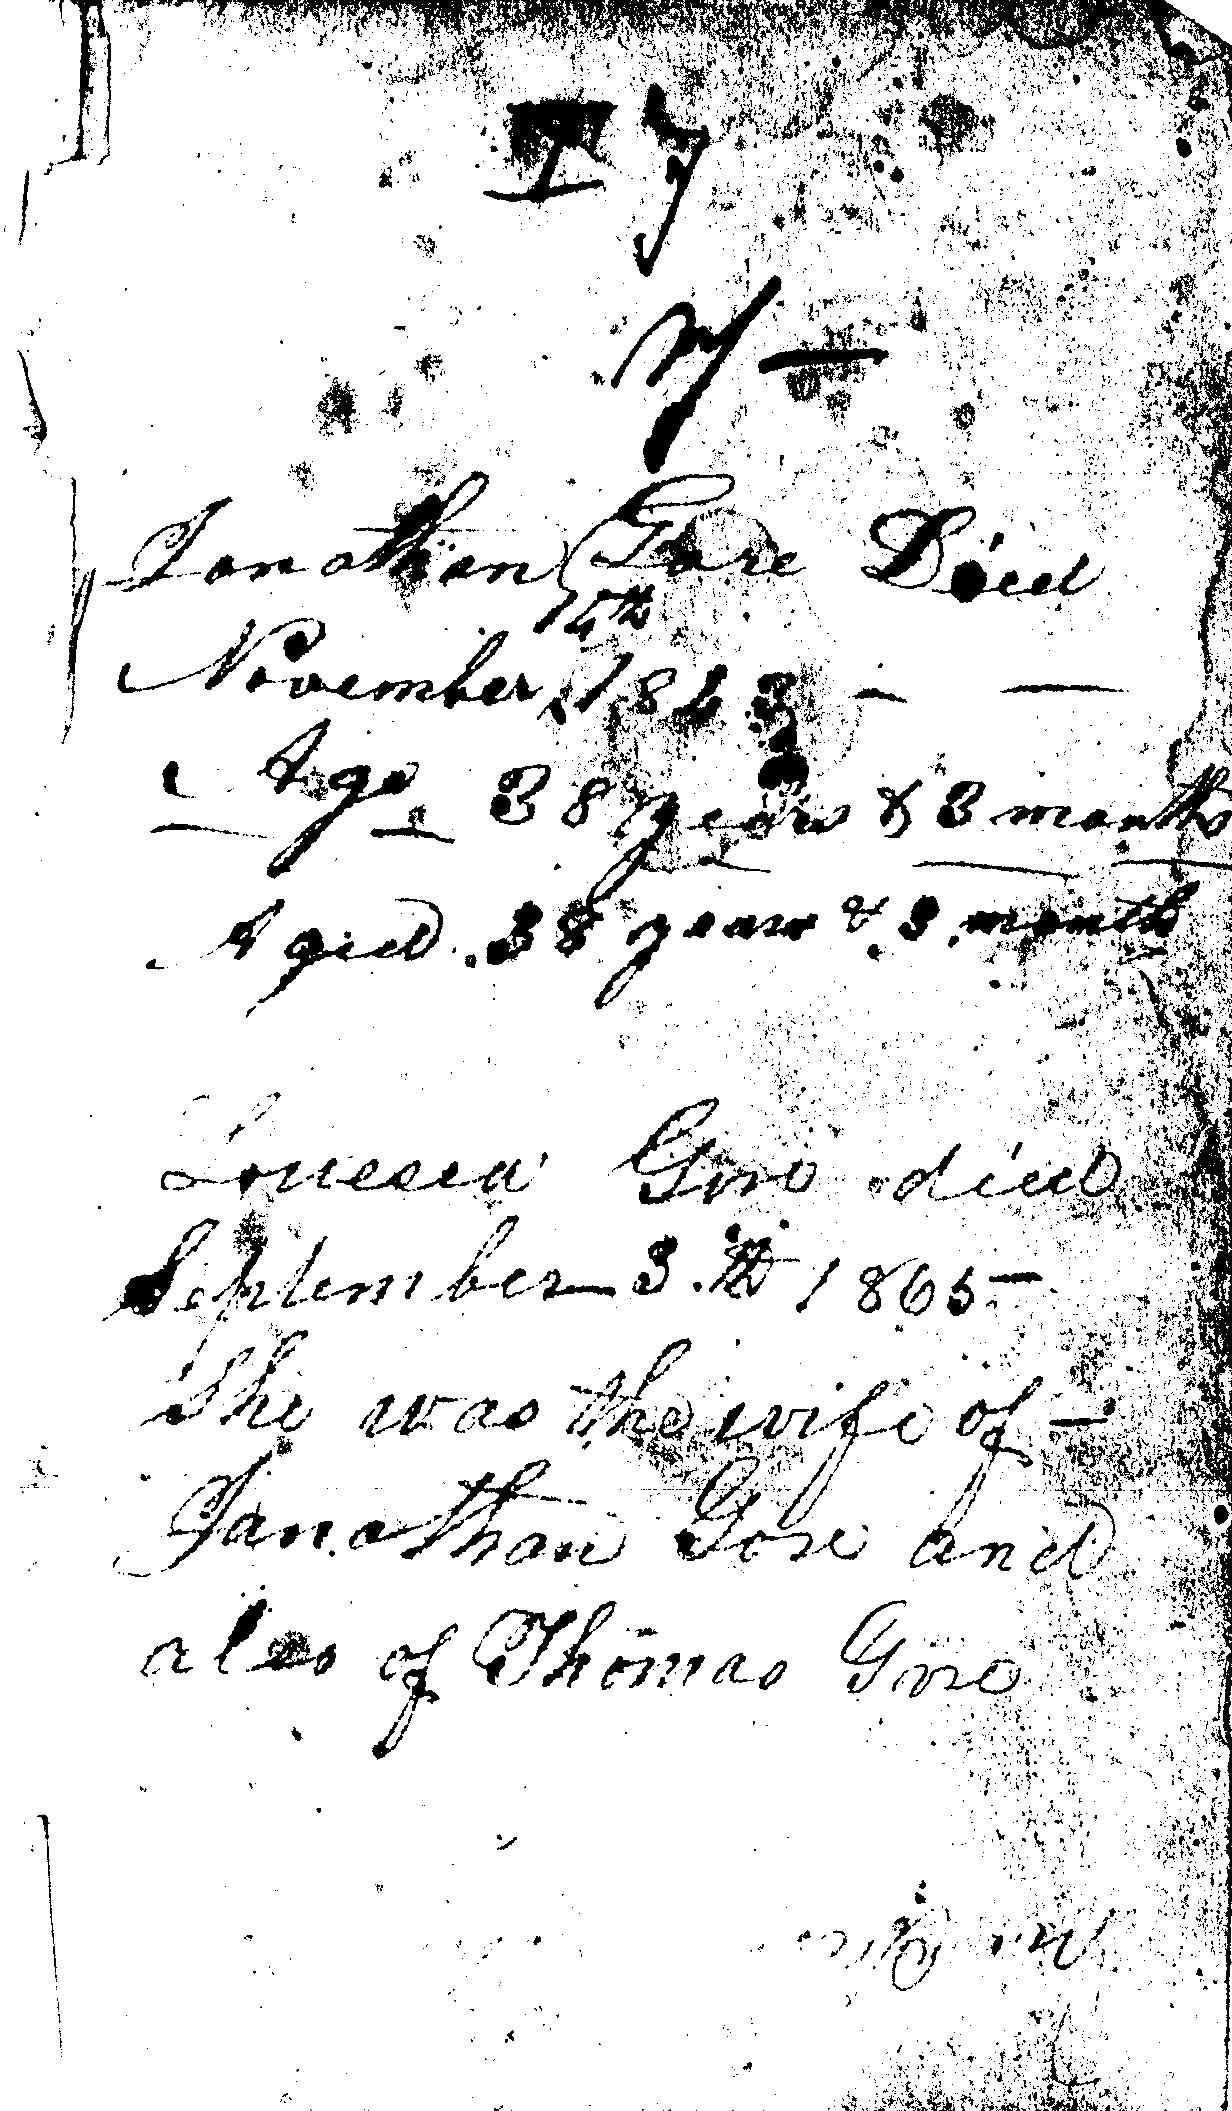 Jonathan Gore Died
15th
November 1843 — —
Age 38 years & 3 months
Agied 38 years & 3 month
Louesea Gore died
September 3.th 1865—
She was the wife of —
Janathan Gore and
also of Thomas Gore